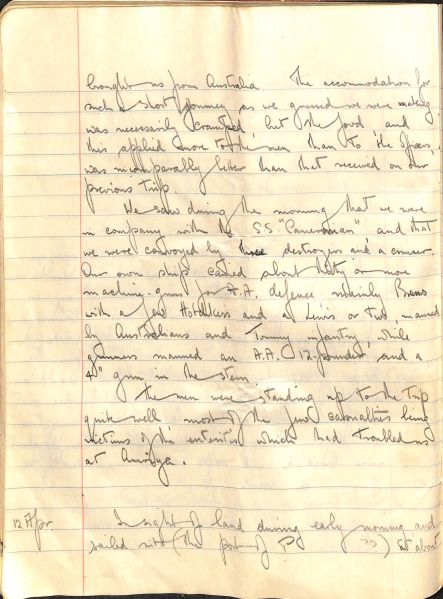 brought us from Australia. The accommodation for
such a short journey as we guessed we were making
was necessarily cramped but the food and
this applied more to the men than to the Officers,
was incomparably better than that received on our
previous trip.
We saw during the morning that we were
in company with the SS "Cameronian" and that
we were convoyed by three destroyers and a cruiser.
Our own ship carried about thirty or more
machine-guns for A.A. defence mainly Brens
with a few Hotchkiss and a Lewis or two, manned
by Australians and Tommy infantry, while
gunners manned an A.A. 12-pounder, and a
4" gun in the stern.
The men were standing up to the trip
quite well most of the few casualties being
victims of the enteritis which had troubled us
at Amiriya.
12 Apr. In sight of land during early morning and
sailed into (the port of P ??) at about